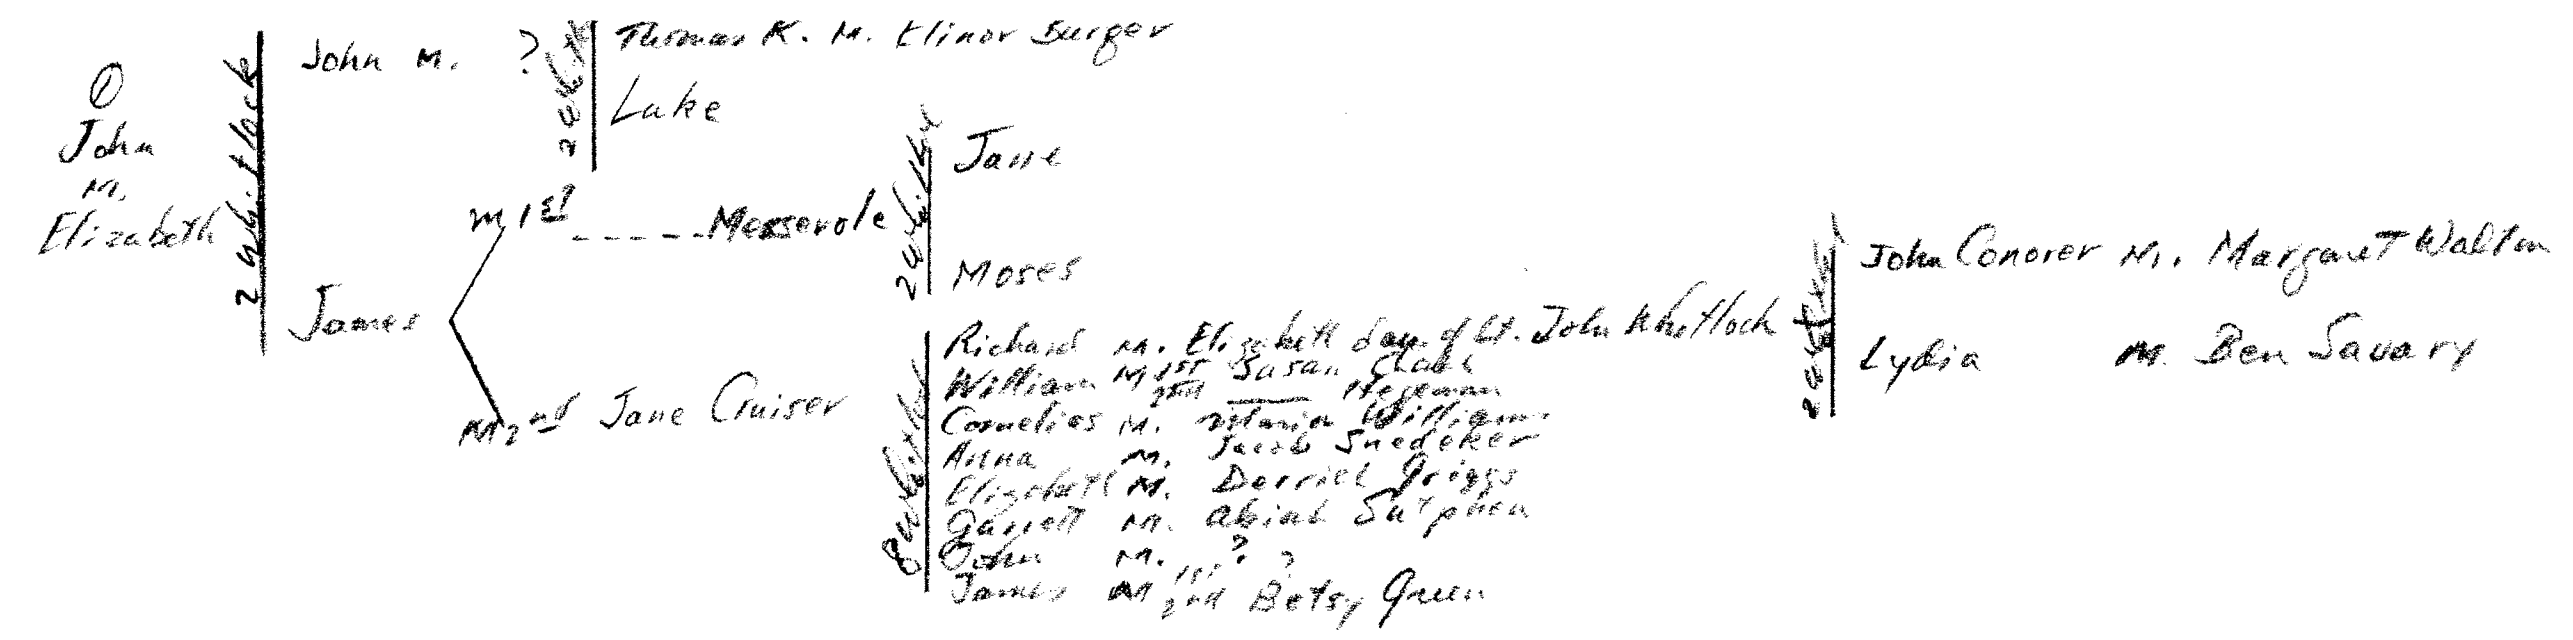 ①
John
M.
Elizabeth
2 Whitlock
John M. ?
James
Thomas K. M. Elinor Burger
Luke
M 1st
_ _ _ _ _ Messerole
M 2nd Jane Cruiser
Jane
Moses
Richard M. Elizabeth dau. of Lt. John Whitlock
William M 1st Susan
2nd ____ Hegeman
Cornelius M. Williams
Anna M. Jacob Snedeker
Elizabeth M. Derrick Griggs
Garrett M. Abiah Sutphen
John M. ?
James M 1st ?
2nd Betsy Green
John Conover M. Margaret Walton
Lydia M. Ben Savary